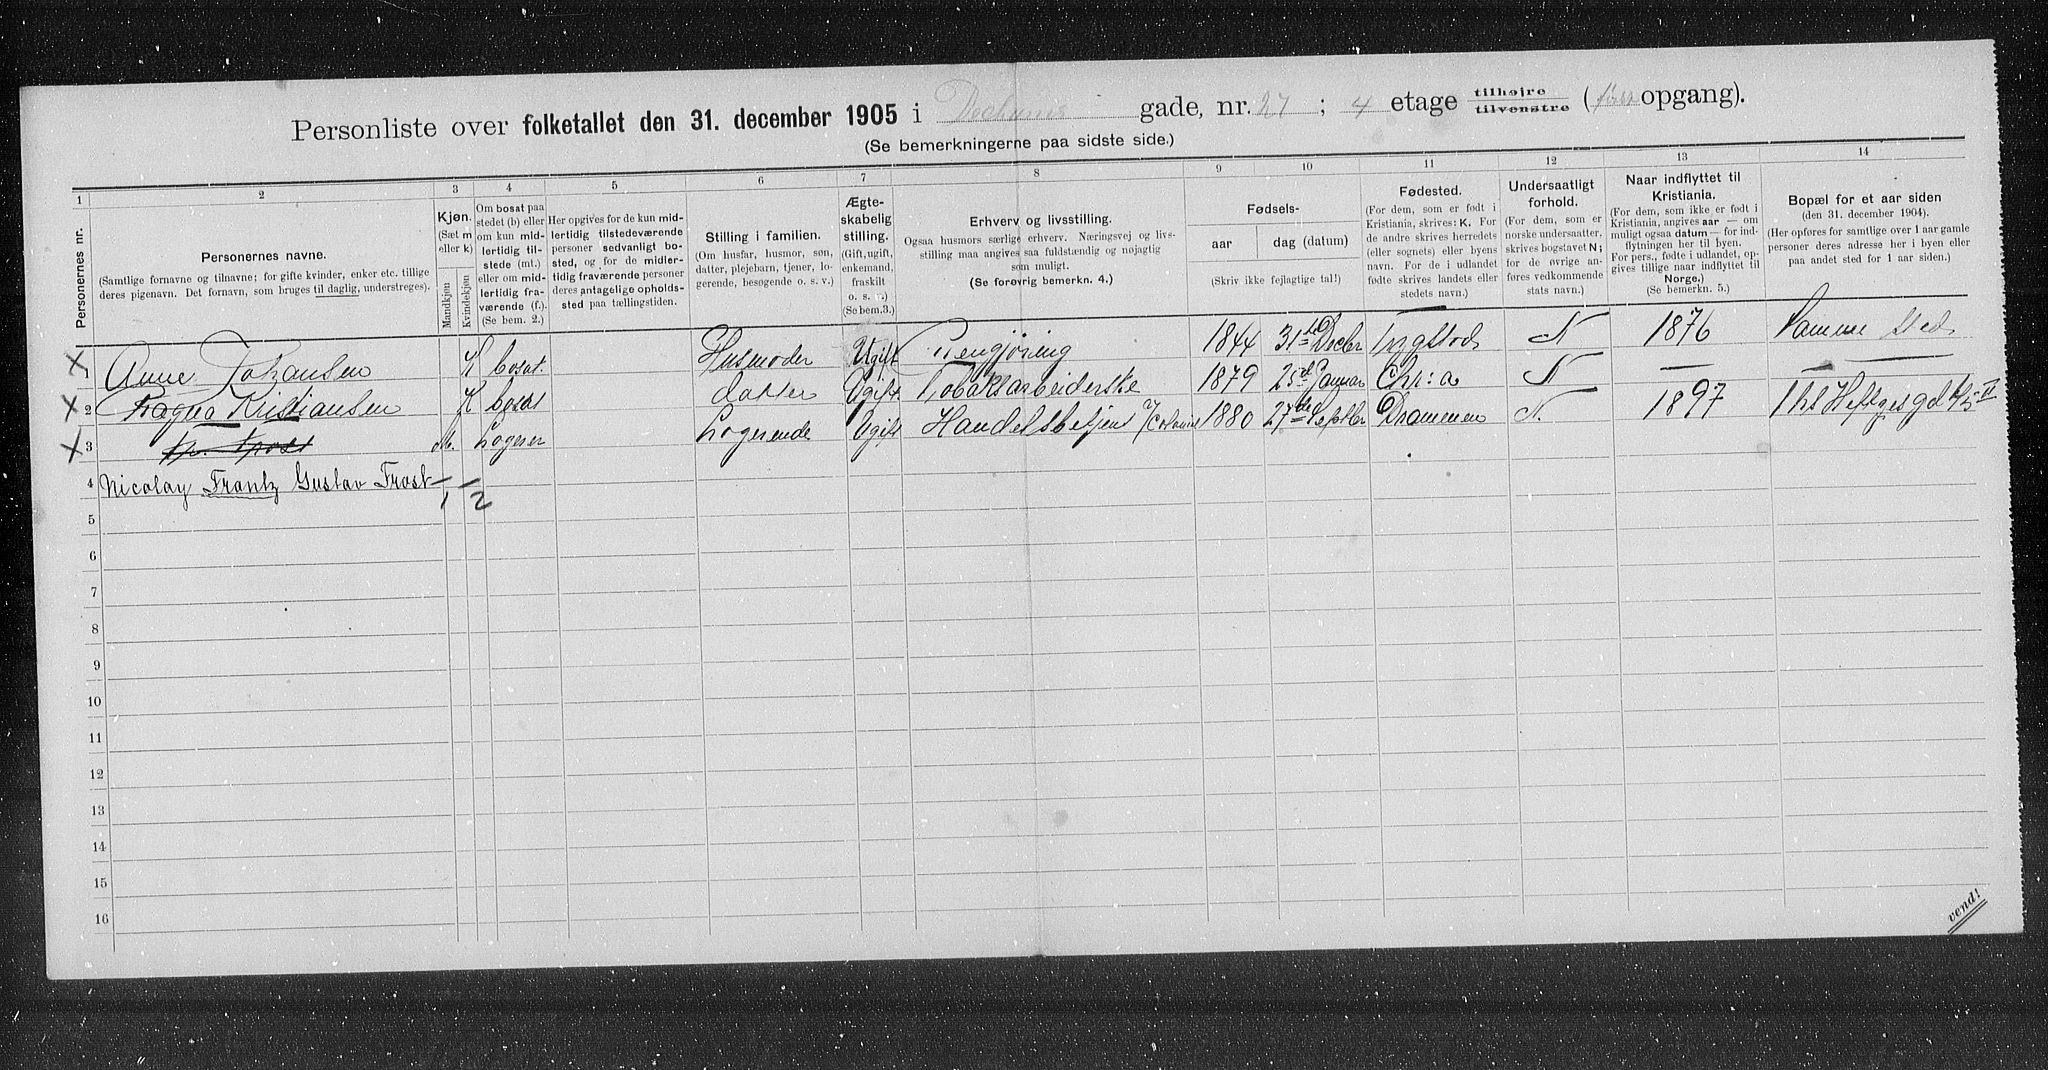 Personliste over folketallet den 31. december 1905 i Dechmis gade, nr. 27 ; 4 etage tilhøjre tilvenstre ( opgang).
(Se bemerkningerne paa sidste side.)
1 2 3 4 5 6 7 8 9 10 11 12 13 14
Personernes nr.
Personernes navne.
(Samtlige fornavne og tilnavne; for gifte kvinder, enker etc. tillige deres pigenavn. Det fornavn, som bruges til daglig, understreges).
Kjøn. (Sæt m eller k)
Mandkjøn
Kvindekjøn
Om bosat paa stedet (b) eller om kun midlertidig tilstede (mt.) eller om midlertidig fraværende (f.). (Se bem. 2.)
Her opgives for de kun midlertidig tilstedeværende personer sedvanligt bosted, og for de midlertidig fraværende personer deres antagelige opholdssted paa tællingstiden.
Stilling i familien.
(Om husfar, husmor, søn, datter, plejebarn, tjener, logerende, besøgende o. s. v.)
Ægteskabelig stilling.
(Gift, ugift, enkemand, fraskilt o. s. v.) (Se bem.3.)
Erhverv og livsstilling.
Ogsaa husmors særlige erhverv. Næringsvej og livsstilling maa angives saa fuldstændig og nøjagtig som muligt.
(Se forøvrig bemerkn. 4.)
Fødsels-
aar
dag (datum)
(Skriv ikke fejlagtige tal!)
Fødested.
(For dem, som er født i Kristiania, skrives: K. For de andre skrives herredets (eller sognets) eller byens navn. For de i udlandet fødte skrives landets eller stedets navn.)
Undersaatligt forhold.
(For dem, som er norske undersaatter, skrives bogstavet N; for de øvrige anføres vedkommende stats navn.)
Naar indflyttet til Kristiania.
(For dem, som ikke er født i Kristiania, angives aar — om muligt ogsaa datum — for indflytningen her til byen. For pers., fødte i udlandet, opgives tillige naar indflyttet til Norge.)
(Se bemerkn. 5.)
Bopæl for et aar siden
(den 31. december 1904).
(Her opføres for samtlige over 1 aar gamle personer deres adresse her i byen eller paa andet sted for 1 aar siden.)
1 Anne Johansen K bosat. Husmoder Ugift Rengjöring 1844 31te Decbr Ingstad N 1876 Samme sted
2 Ragna Kristiansen K bosat datter Ugift Tobaksarbeiderske 1879 25de Januar Chr:a N — —
3 Hr. Frost m. Logerer Logerende Ugift Handelsbetjent 1880 27de Septbr Drammen N. 1897
4 Nicolay Frantz Gustav Frost 1 2
5
6
7
8
9
10
11
12
13
14
15
16
vend!